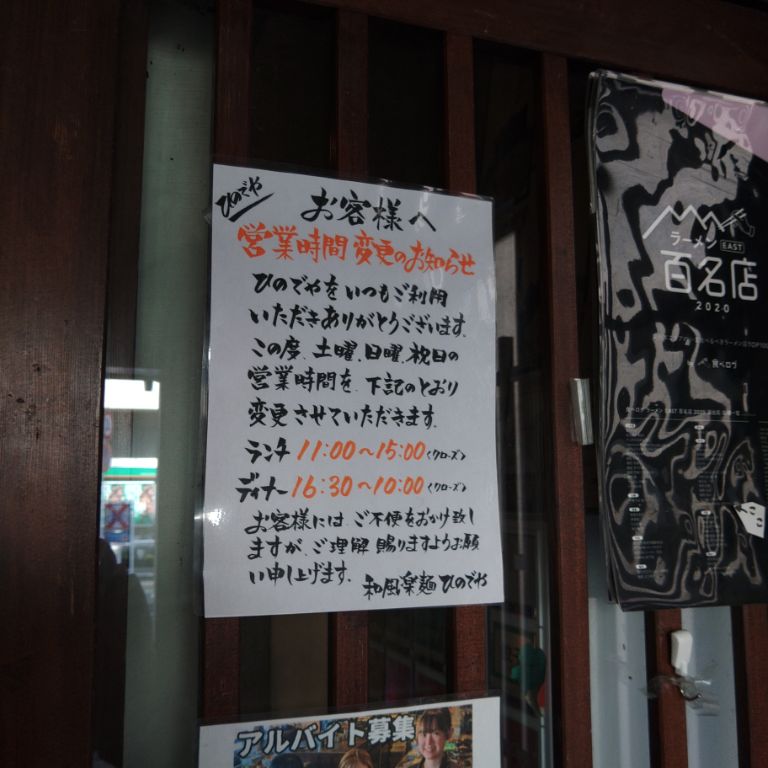 ひのでや
お客様へ
営業時間変更のお知らせ
ひのでやをいつもご利用
いただきありがとうございます。
この度、土曜、日曜、祝日の
営業時間を、下記のとおり
変更させていただきます。
ランチ 11:00～15:00〈クローズ〉
ディナー 16:30～10:00〈クローズ〉
お客様には、ご不便をおかけ致し
ますが、ご理解 賜りますようお願
い申し上げます。
和風楽麺 ひのでや
アルバイト募集
ラーメン EAST
百名店
2020
食べログ